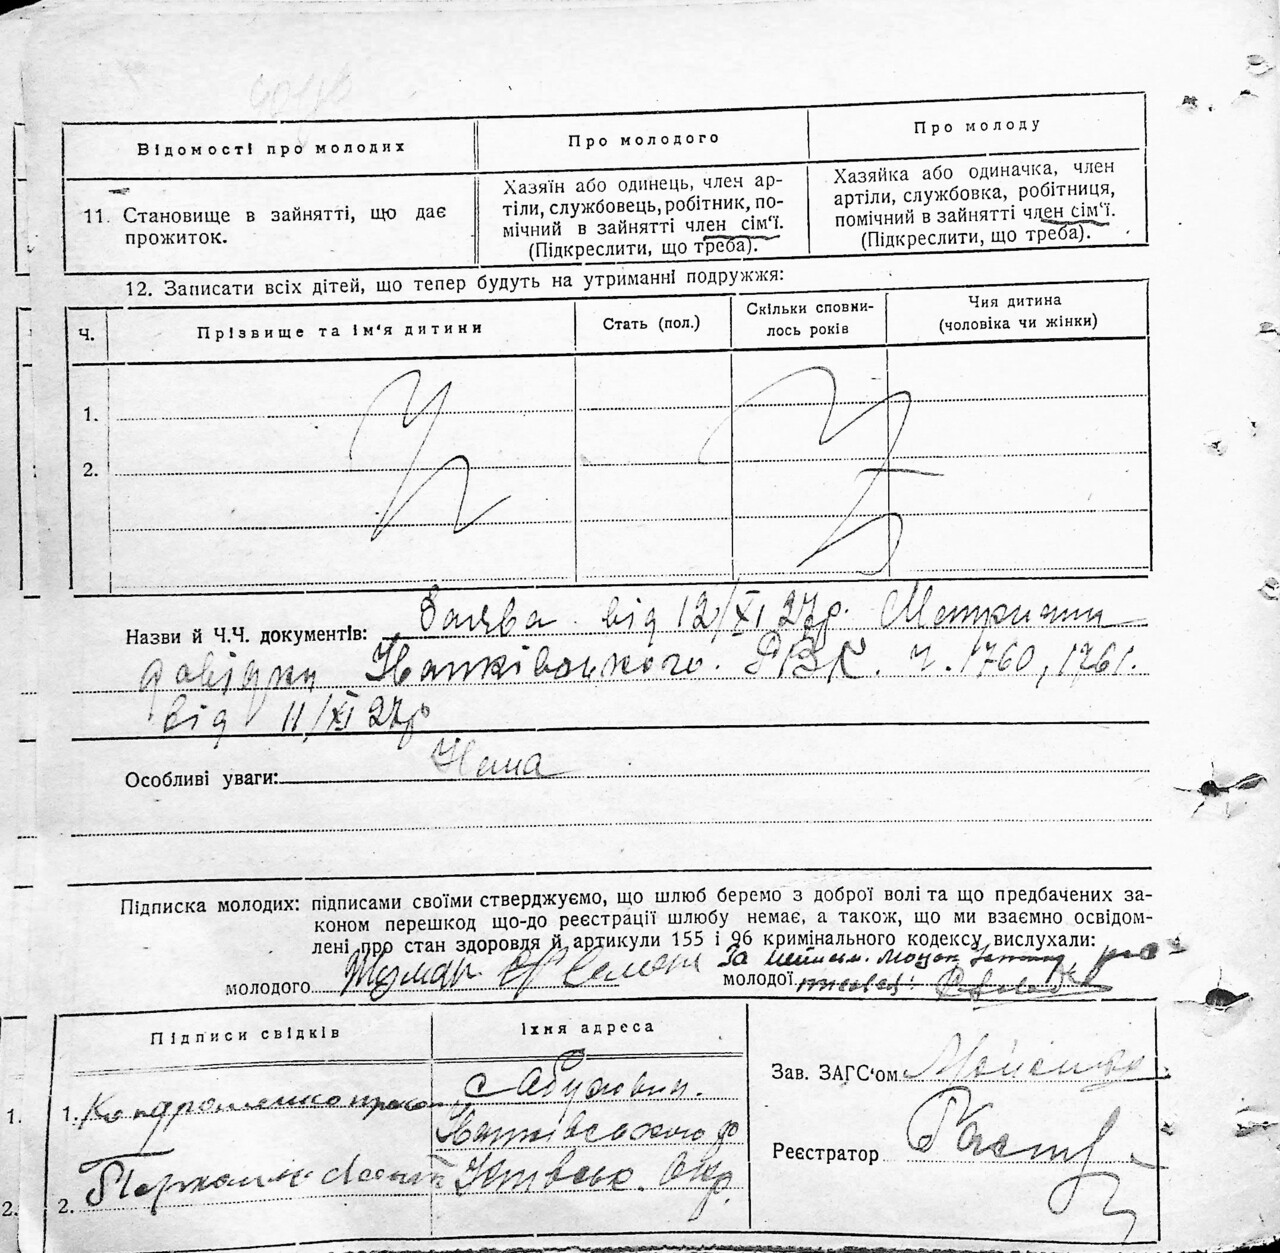 Відомості про молодих
Про молодого
Про молоду
11. Становище в зайнятті, що дає
прожиток.
Хазяїн або одинець, член ар-
тіли, службовець, робітник, по-
мічний в зайнятті член сім'ї.
(Підкреслити, що треба).
Хазяйка або одиначка, член
артіли, службовка, робітниця,
помічний в зайнятті член сім'ї.
(Підкреслити, що треба).
12. Записати всіх дітей, що тепер будуть на утриманні подружжя:
Ч.
Прізвище та ім'я дитини
Стать (пол.)
Скільки сповни-
лось років
Чия дитина
(чоловіка чи жінки)
1.
2.
Назви й Ч.Ч. документів: Заява від 12/XI 27р. Метрични
довідки Іванківського РВК. ч. 1760, 1761.
від 11/XI 27р
Особливі уваги: Нема
Підписка молодих: підписами своїми стверджуємо, що шлюб беремо з доброї волі та що предбачених за-
коном перешкод що-до реєстрації шлюбу немає, а також, що ми взаємно освідом-
лені про стан здоровля й артикули 155 і 96 кримінального кодексу вислухали:
молодого
За
молодої
Підписи свідків
Їхня адреса
1.
1.
с
Іванківського р
2.
2.
Окр.
Зав. ЗАГС'ом
Реєстратор